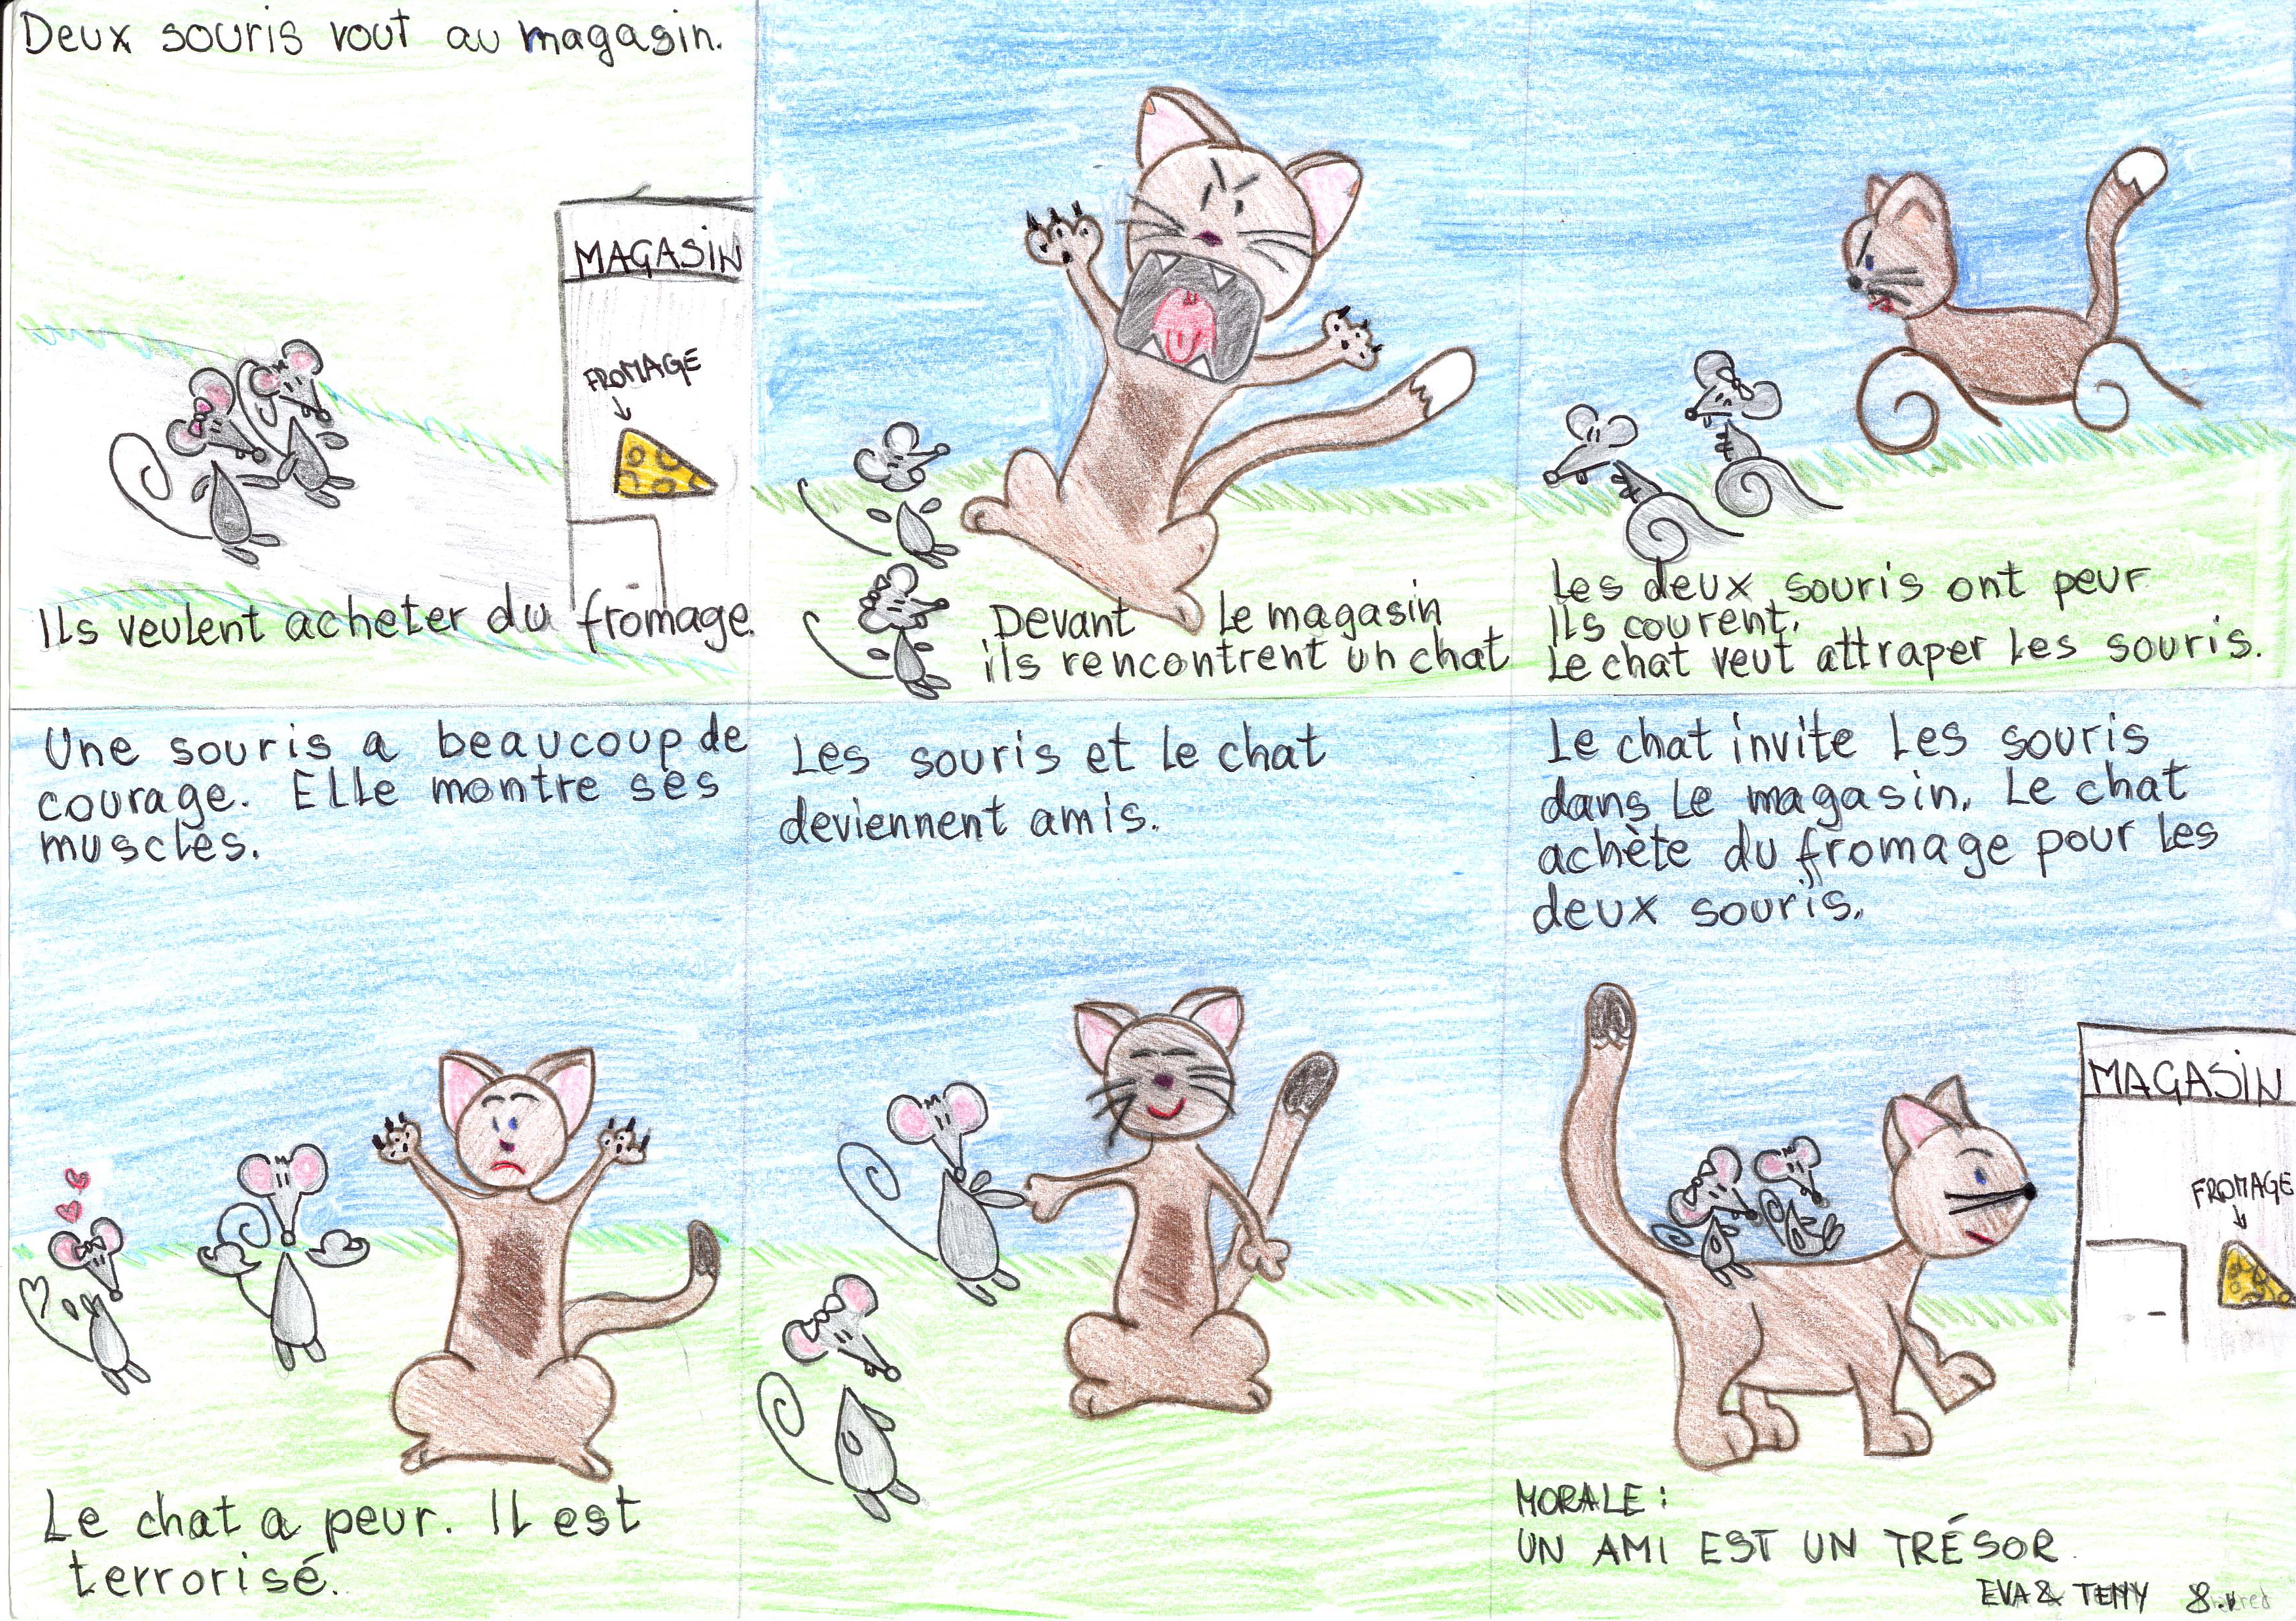 Deux souris vout au magasin.
MAGASIN
FROMAGE
Ils veulent acheter du fromage.
Devant le magasin
ils rencontrent un chat
Les deux souris ont peur
Ils courent.
Le chat veut attraper les souris.
Une souris a beaucoup de
courage. Elle montre ses
muscles.
Le chat a peur. Il est
terrorisé.
Les souris et le chat
deviennent amis.
Le chat invite les souris
dans le magasin. Le chat
achète du fromage pour les
deux souris.
MAGASIN
FROMAGE
MORALE:
UN AMI EST UN TRÉSOR.
EVA & TEMY 8.